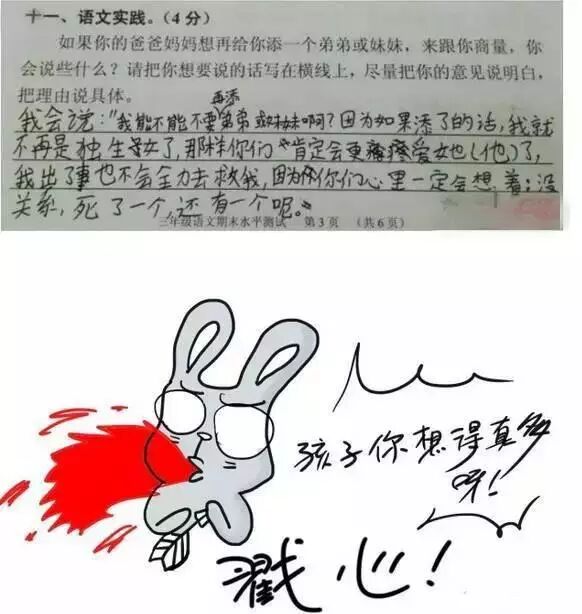 十一、语文实践。(4分)
如果你的爸爸妈妈想再给你添一个弟弟或妹妹，来跟你商量，你
会说些什么？请把你想要说的话写在横线上，尽量把你的意见说明白，
把理由说具体。
再添
我会说："我能不能不要弟弟或妹妹啊？因为如果添了的话，我就
不再是独生女了，那样你们肯定会更疼爱她(他)了，
我出了事也不会全力去救我，因为你们心里一定会想着：没
关系，死了一个，还有一个呢。"
三年级语文期末水平测试 第3页 (共6页)
孩子你想得真多
呀！
戳心！